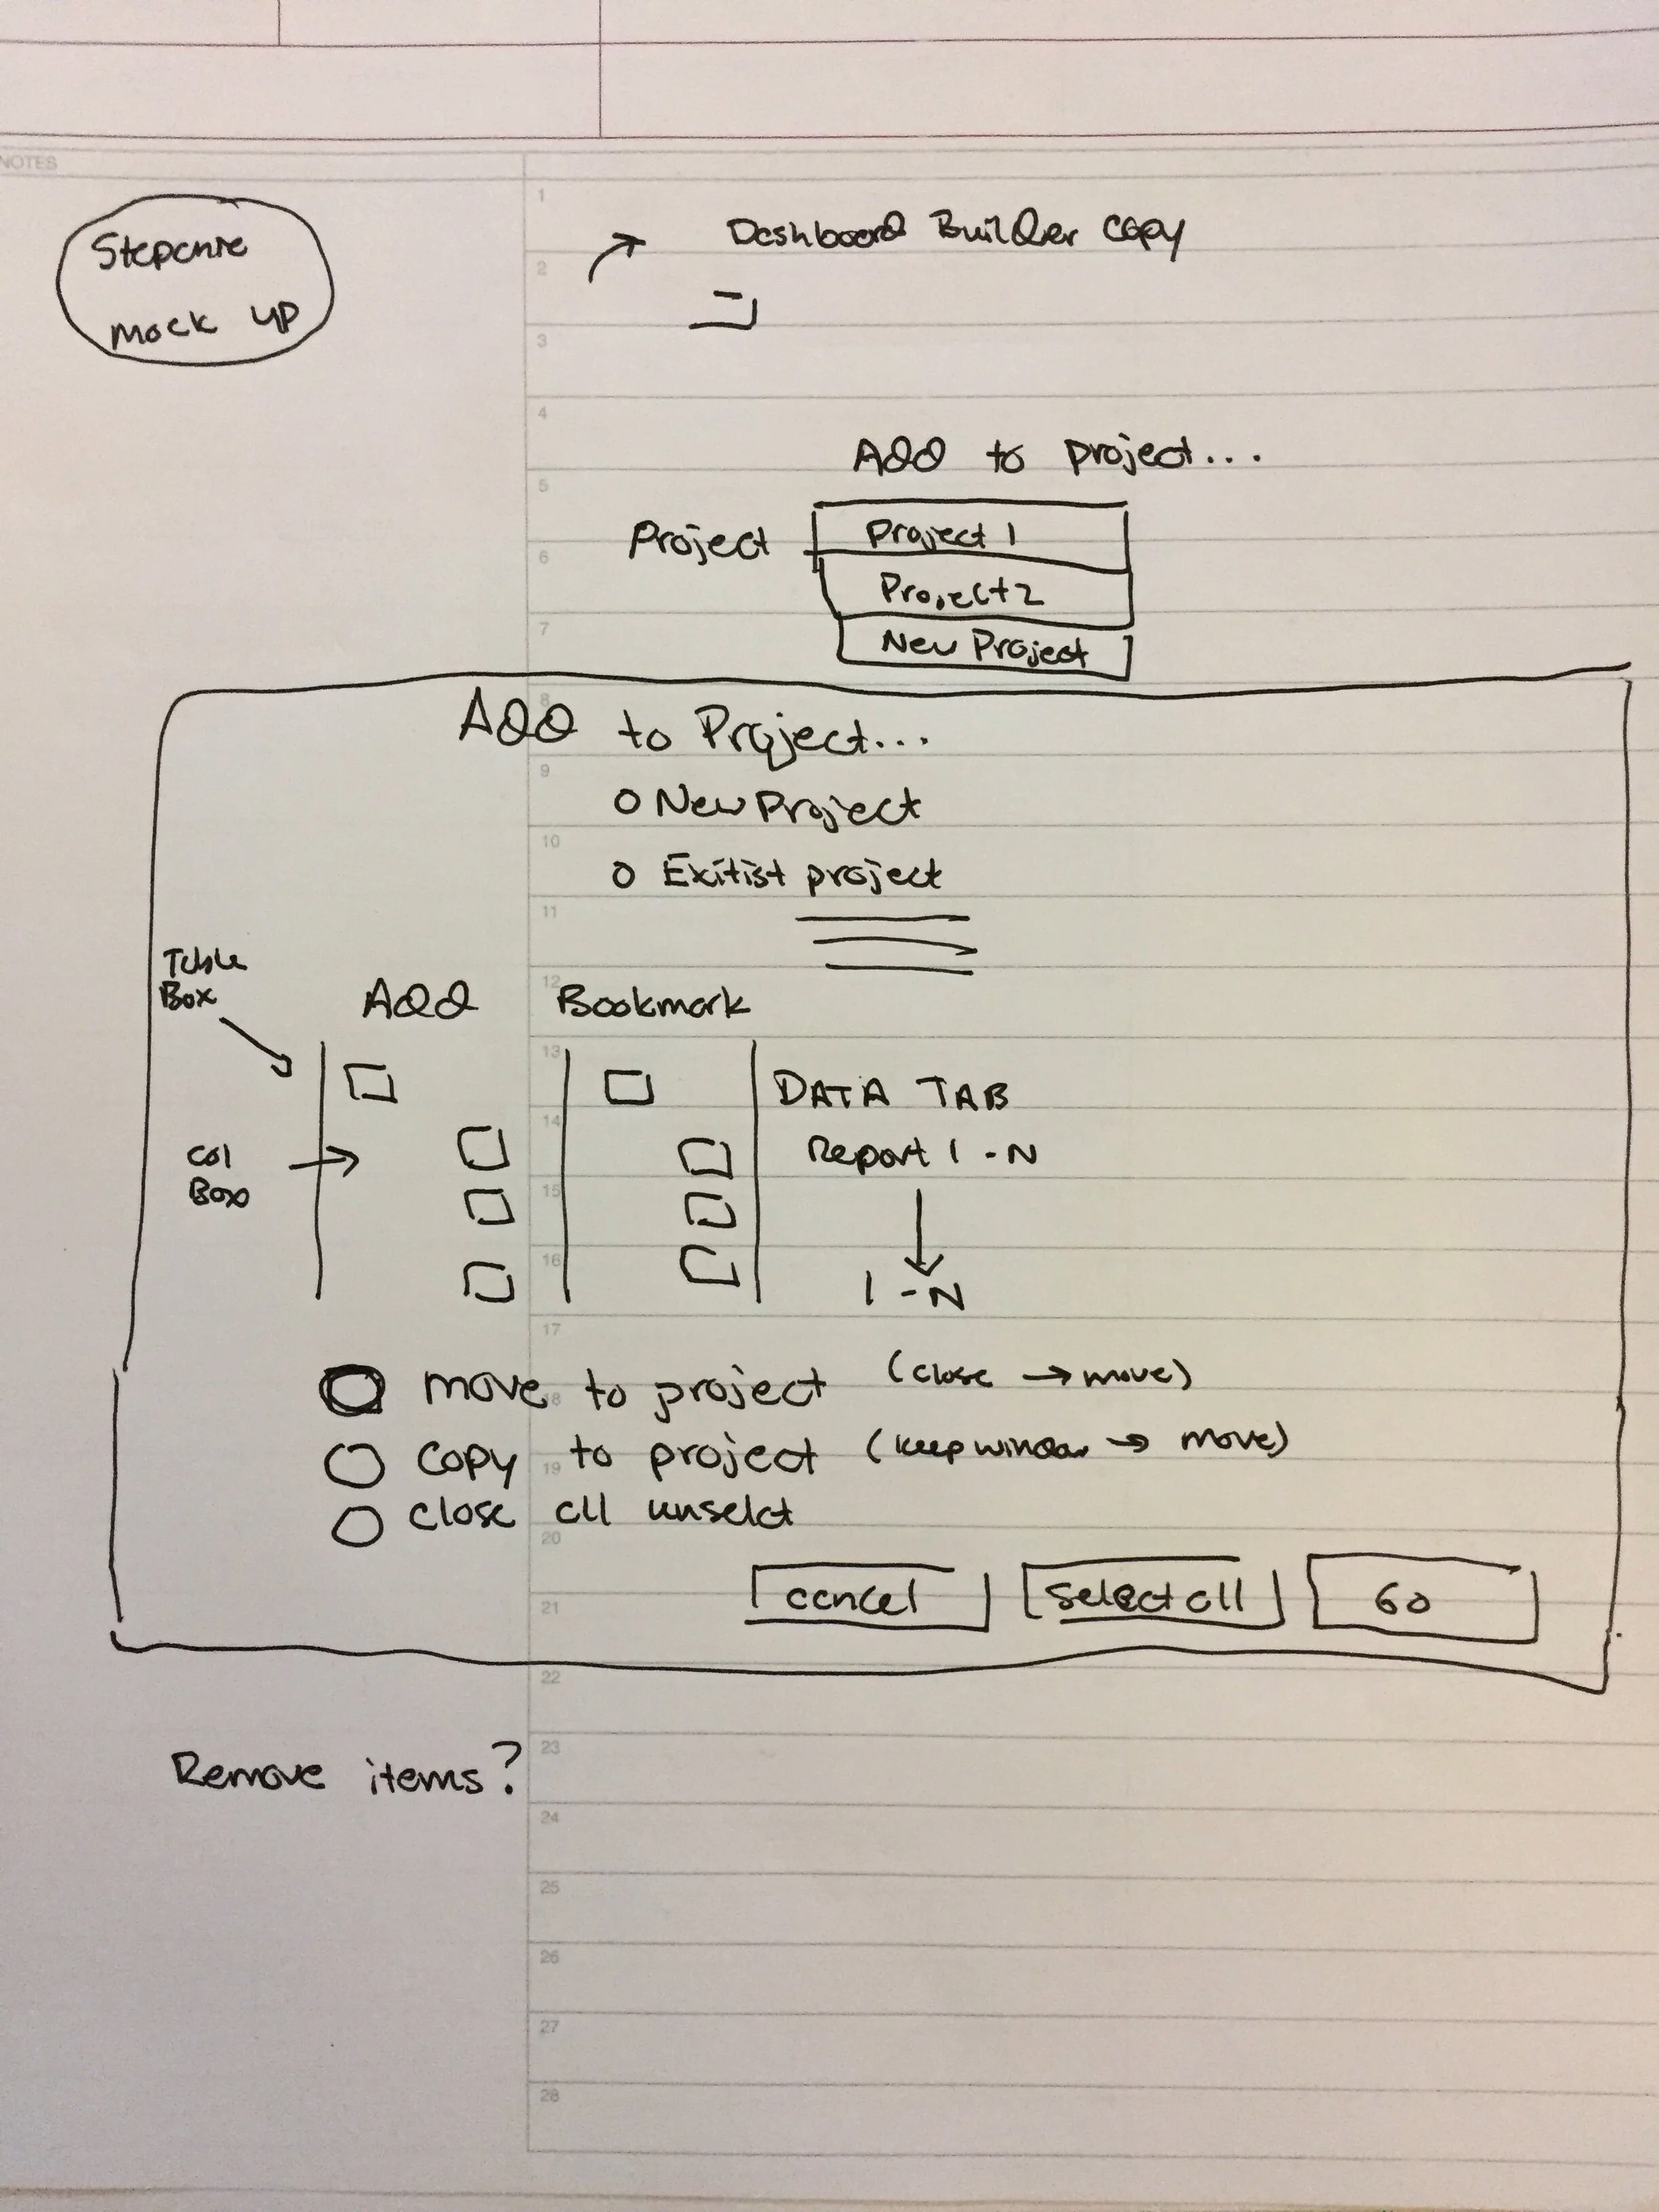 NOTES
Stepanie
mock up
Dashboard Builder copy
Add to project...
Project
Project 1
Project 2
New Project
Add to Project...
New Project
Exitist project
Table
Box
Add Bookmark
DATA TAB
Col
Box
Report 1 - N
1 - N
move to project (close → move)
copy to project (keep window → move)
close all unselct
cancel select all Go
Remove items?
1
2
3
4
5
6
7
8
9
10
11
12
13
14
15
16
17
18
19
20
21
22
23
24
25
26
27
28